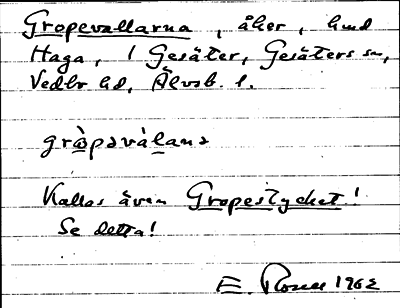 Gropevallarna, åker, hmd
Haga, 1 Gesäter, Gesäters sn,
Vedbo hd, Älvsb. l.
gròpəvàlanə
Kallas även Gropestycket!
Se detta!
E. Rosell 1962